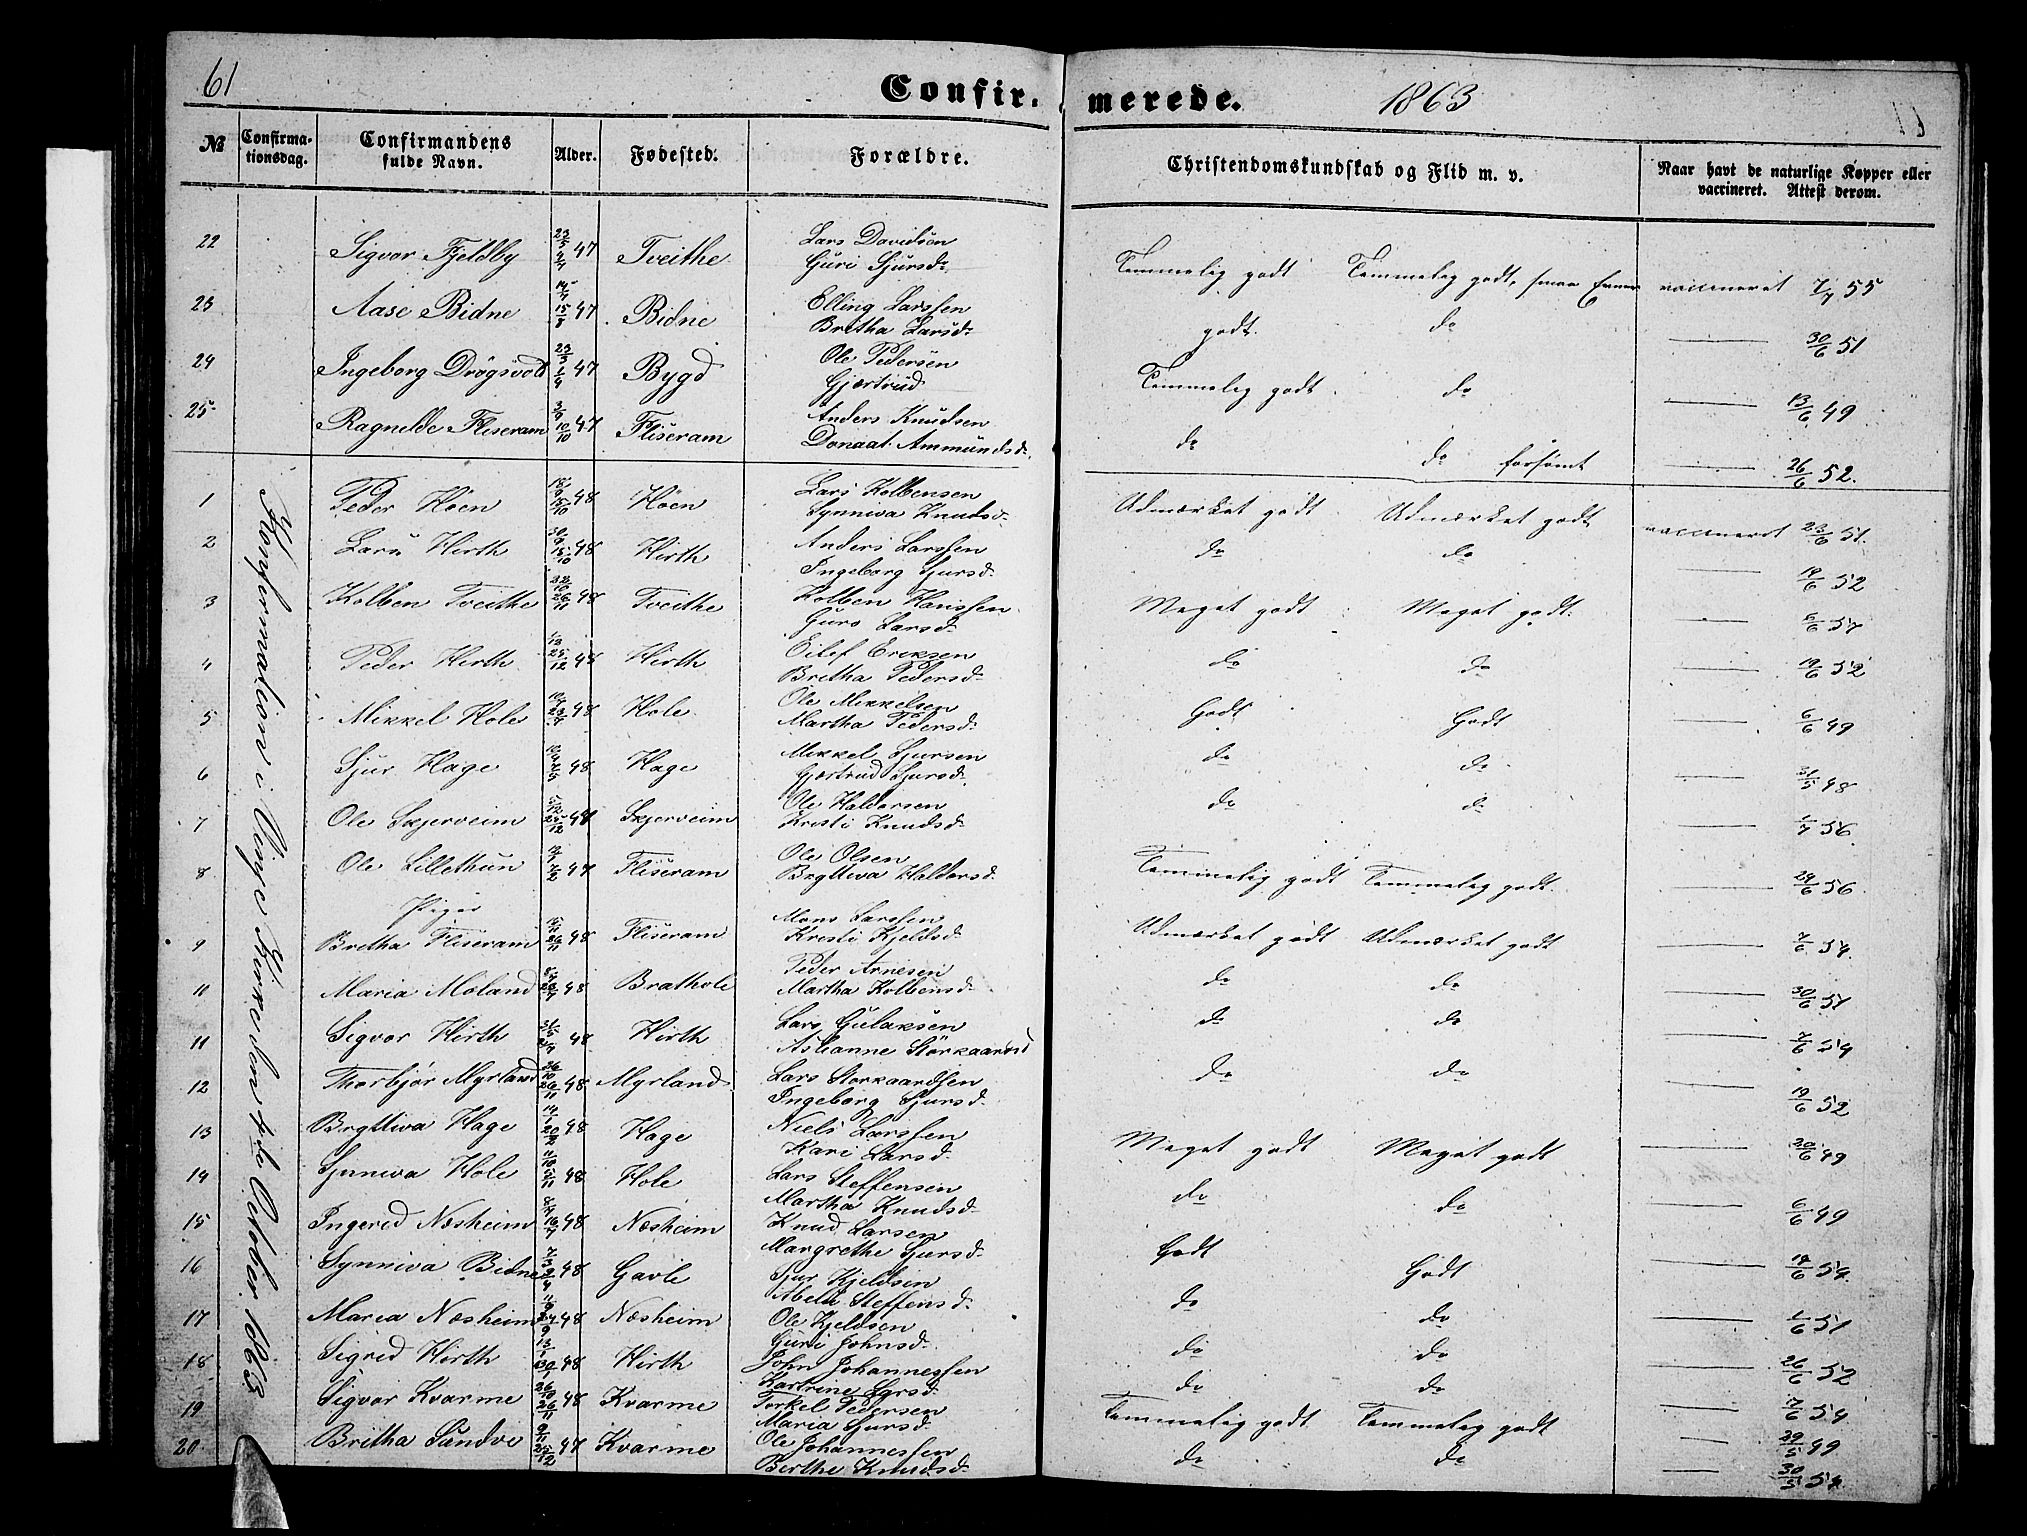 61
Confirmerede. 1863
№ Confirmationsdag. Confirmandens fulde Navn. Alder. Fødested. Forældre. Christendomskundskab og Flid m. v. Naar havt de naturlige Kopper eller vaccineret. Attest derom.
22 Sigvor Fjeldby 23/5 2/4 47 Tveithe Lars Davidsen Guri Sjursd. Temmelig godt Temmelig godt, smaa Evner vaccineret 7/7 55
23 Aase Bidne 15/8 47 Bidne Elling Larssen Bretha Larsd. godt. do 30/6 51
24 Ingeborg Drøgsvold 23/3 1/4 47 Bygd Ole Pedersen Gjærtrud Temmelig godt do 13/6 49
25 Ragnelde Fliseram 3/9 10/10 47 Fliseram Anders Knudsen Donaat Ammundsd. do do forsømt 26/6 52.
Konfirmation i Vinje Kirke den 4de Octobr. 1863
1 Peder Høen 48 Høen Lars Kolbensen Synniva Knudsd. Udmærket godt Udmærket godt vaccineret 23/6 51.
2 Lars Hirth 30/9 15/10 48 Hirth Anders Larssen Ingeborg Sjursd. do do 19/6 52
3 Kolben Tveithe 22/10 26/11 48 Tveithe Kolben Hanssen Guro Larsd. Meget godt Meget godt. 6/6 57
4 Peder Hirth 25/12 48 Hirth Eilef Eriksen Bretha Pedersd. do do 19/6 52
5 Mikkel Hole 23/4 48 Hole Ole Mikkelsen Martha Pedersd. Godt Godt 6/6 49
6 Sjur Hage 48 Hage Mikkel Sjursen Gjertrud Sjursd. do do 31/5 48
7 Ole Skjerveim 25/12 48 Skjerveim Ole Haldorsen Kristi Knudsd. do do 1/7 56
8 Ole Lillethun 7/2 47 Fliseram Ole Olsen Brytteva Haldorsd. Temmelig godt Temmelig godt. 29/6 56
Piger
9 Bretha Fliseram 26/11 48 Fliseram Mons Larssen Kristi Kjeldsd. Udmærket godt Udmærket godt 7/6 54.
11 Maria Møland 48 Brathole Peder Arnesen Martha Kolbensd. do do 30/6 51
11 Sigvor Hirth 48 Hirth Lars Gulaksen Aslianne Størkaarsd do do 7/6 54
12 Thorbjør Myrland 26/10 26/11 48 Myrland Lars Storkaardsen Ingeborg Sjursd. do do 19/6 52
13 Bryttiva Hage 20/2 48 Hage Niels Larssen Kari Larsd. Meget godt Meget godt 20/6 49
14 Synniva Hole 48 Hole Lars Steffensen Martha Knudsd. do do 6/6 49
15 Ingerid Næsheim 8/7 16/7 48 Næsheim Knud Larsen Margrethe Sjursd. Godt Godt 19/6 54.
16 Synniva Bidne 7/3 2/4 48 Gavle Sjur Kjeldsen Abelu Steffensd. do do 1/6 51
17 Maria Næsheim 11/9 24/9 48 Næsheim Ole Kjeldsen Guri Johnsd. do do 26/6 52
18 Sigrid Hirth 48 Hirth John Johannessen Kartrine Sjursd. do do 17/6 54
19 Sigvor Kvarme 26/10 26/11 48 Kvarme Torkel Pedersen Maria Sjursd. Temmelig godt Temmelig godt 29/5 49
20 Britha Sundve 9/11 47 Kvarme Ole Johannessen Berthe Knudsd. do do 30/5 54.